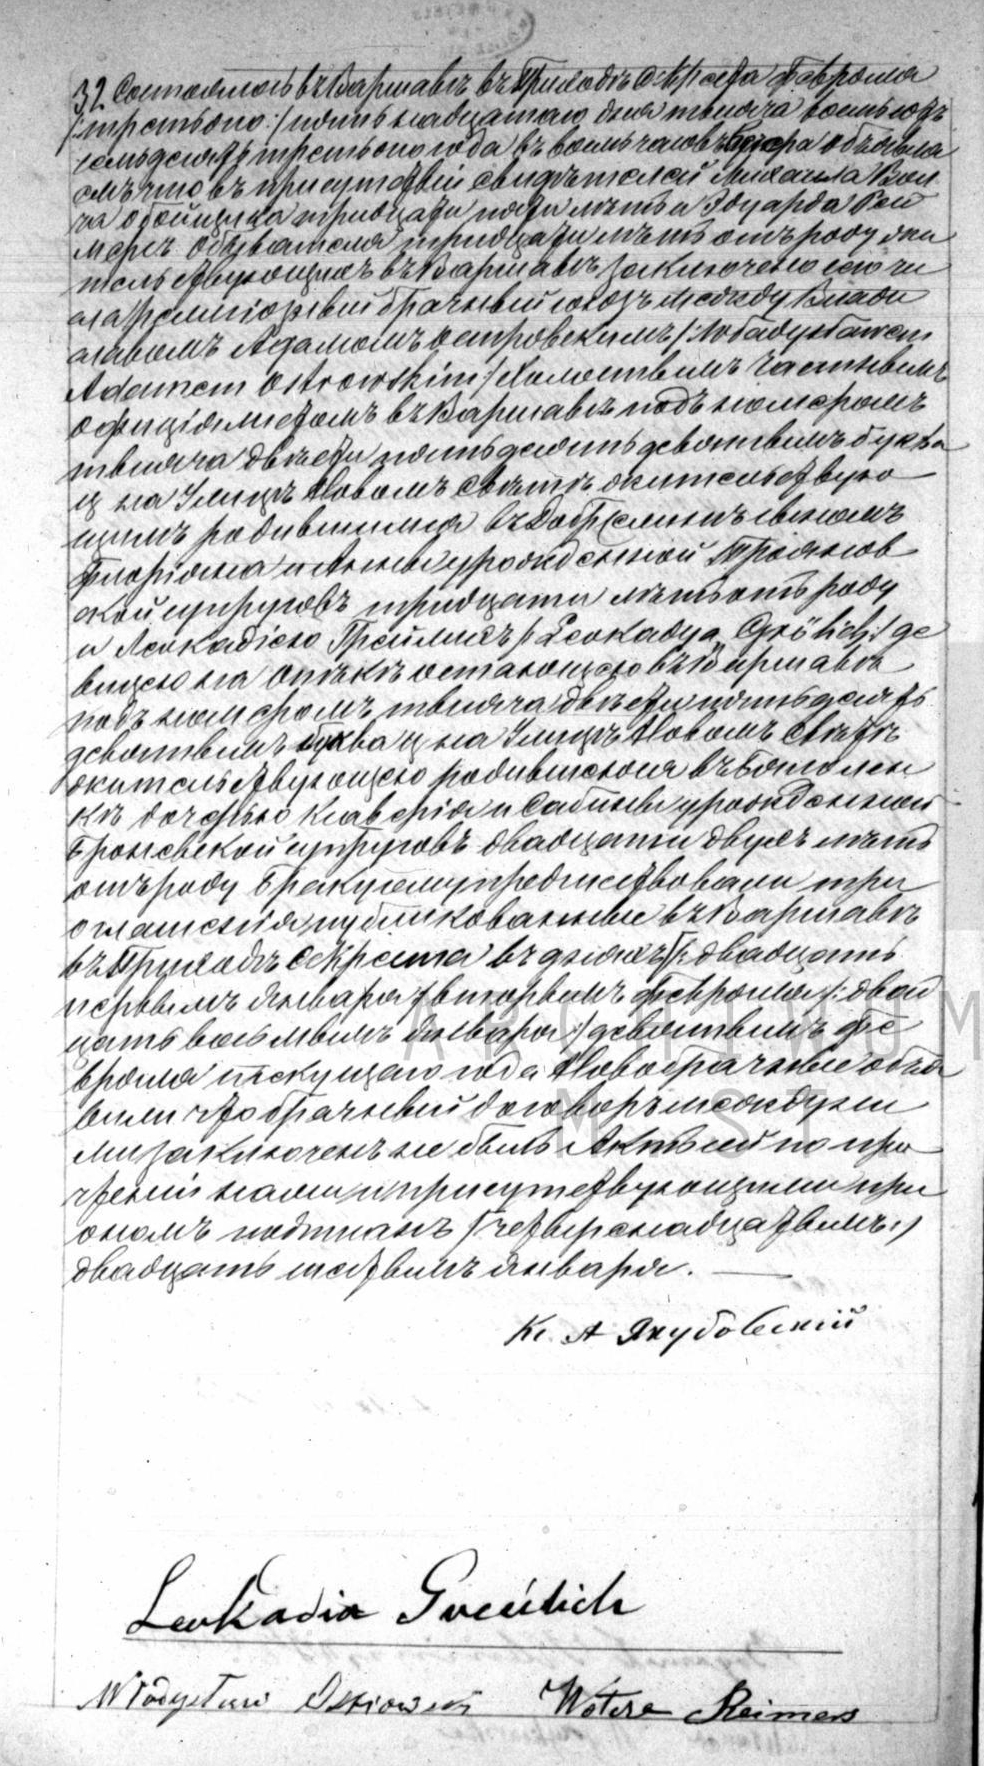 32 Состоялось въ Варшавѣ въ Приходѣ С. Креста Февраля
/: третьяго :/ пятьнадцатаго дня тысяча восемьсотъ
семьдесятъ третьяго года въ восемь часовъ вечера объявля
емъ что въ присутствіи свидѣтелей Михаила Вол
ча обойщика тридцати пяти лѣтъ и Эдуарда Рей
мерсъ обывателя тридцати лѣтъ отъ роду жи
тельствующихъ въ Варшавѣ заключено сего чи
сла религіозный брачный союзъ между Влади
славомъ Адамомъ Островскимъ /:
Adamem Ostrowskim/ холостымъ частнымъ
оффиціялистомъ въ Варшавѣ подъ номеромъ
тысяча двѣсти пятьдесятъ девятымъ буква
ц на Улицѣ Новомъ Свѣтѣ жительствую
щимъ родившимся въ сыномъ
Флоріяна и Анны урожденной
ской супруговъ тридцати лѣтъ отъ роду
и Леокадіею /: Leokadyą :/ дѣ
вицею на опекѣ остающеюся въ Варшавѣ
подъ номеромъ тысяча двѣсти пятьдесятъ
девятымъ буква ц на Улицѣ Новомъ Свѣтѣ
жительствующею родившеюся въ
кѣ дочерью Ксаверія и Сабины урожденной
супруговъ двадцати двухъ лѣтъ
отъ роду Браку сему предшествовали три
оглашенія публикованные въ Варшавѣ
въ Приходѣ С Креста въ дняхъ /: двадцать
первымъ Января / вторымъ Февраля /: двад
цать восьмымъ Января :/ девятымъ Фе
враля текущаго года Новобрачные объя
вили что брачный договоръ между ни
ми заключенъ не былъ Актъ сей по про
чтеніи нами и присутствующими при
ономъ подписанъ /: четвертнадцатымъ :/
двадцать шестымъ Января.
Кс. А Якубовскій
Leokadia Greulich
Władysław Ostrowski Reimers